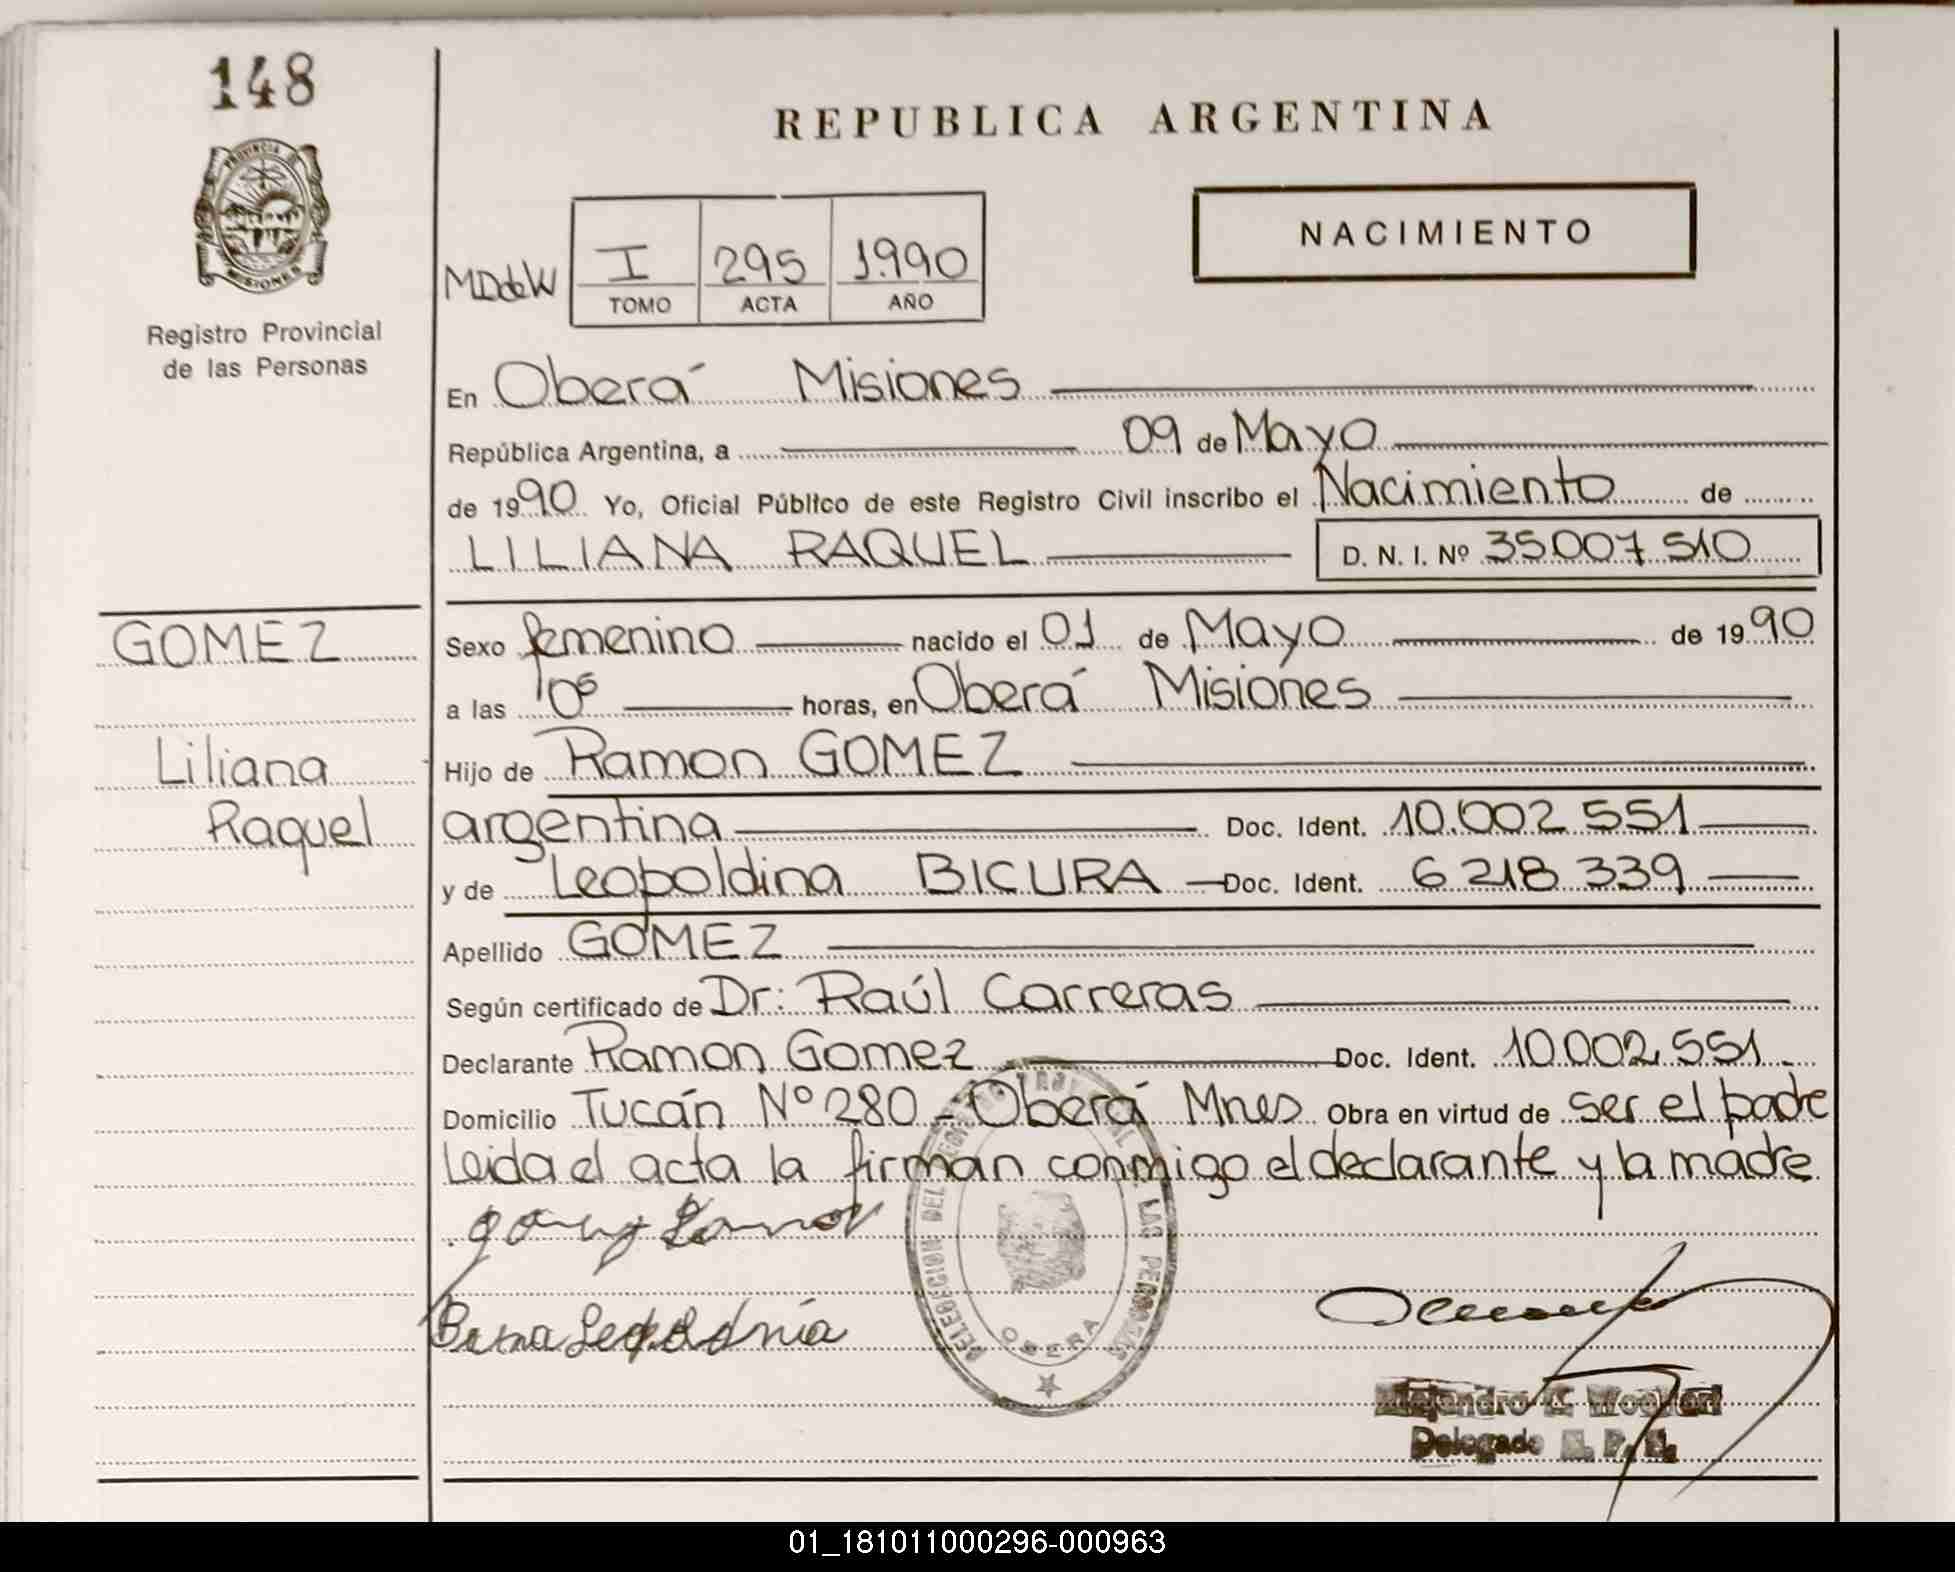 148
PROVINCIA DE
MISIONES
Registro Provincial
de las Personas
REPUBLICA ARGENTINA
NACIMIENTO
MDdeW
I 295 1.990
TOMO ACTA AÑO
En Oberá Misiones
República Argentina, a 09 de Mayo
de 1990 Yo, Oficial Público de este Registro Civil inscribo el Nacimiento de
LILIANA RAQUEL D. N. I. Nº 35.007.510
GOMEZ
Liliana
Raquel
Sexo femenino nacido el 01 de Mayo de 1990
a las 10⁰⁵ horas, en Oberá Misiones
Hijo de Ramon GOMEZ
argentina Doc. Ident. 10.002.551
y de Leopoldina BICURA Doc. Ident. 6.218.339
Apellido GOMEZ
Según certificado de Dr: Raúl Carreras
Declarante Ramon Gomez Doc. Ident. 10.002.551
Domicilio Tucán Nº 280 - Oberá Mnes Obra en virtud de ser el padre
Leida el acta la firman conmigo el declarante y la madre
DELEGACION DEL REGISTRO PROVINCIAL DE LAS PERSONAS
OBERA
Alejandro
Delegado R. P. P.
01_181011000296-000963